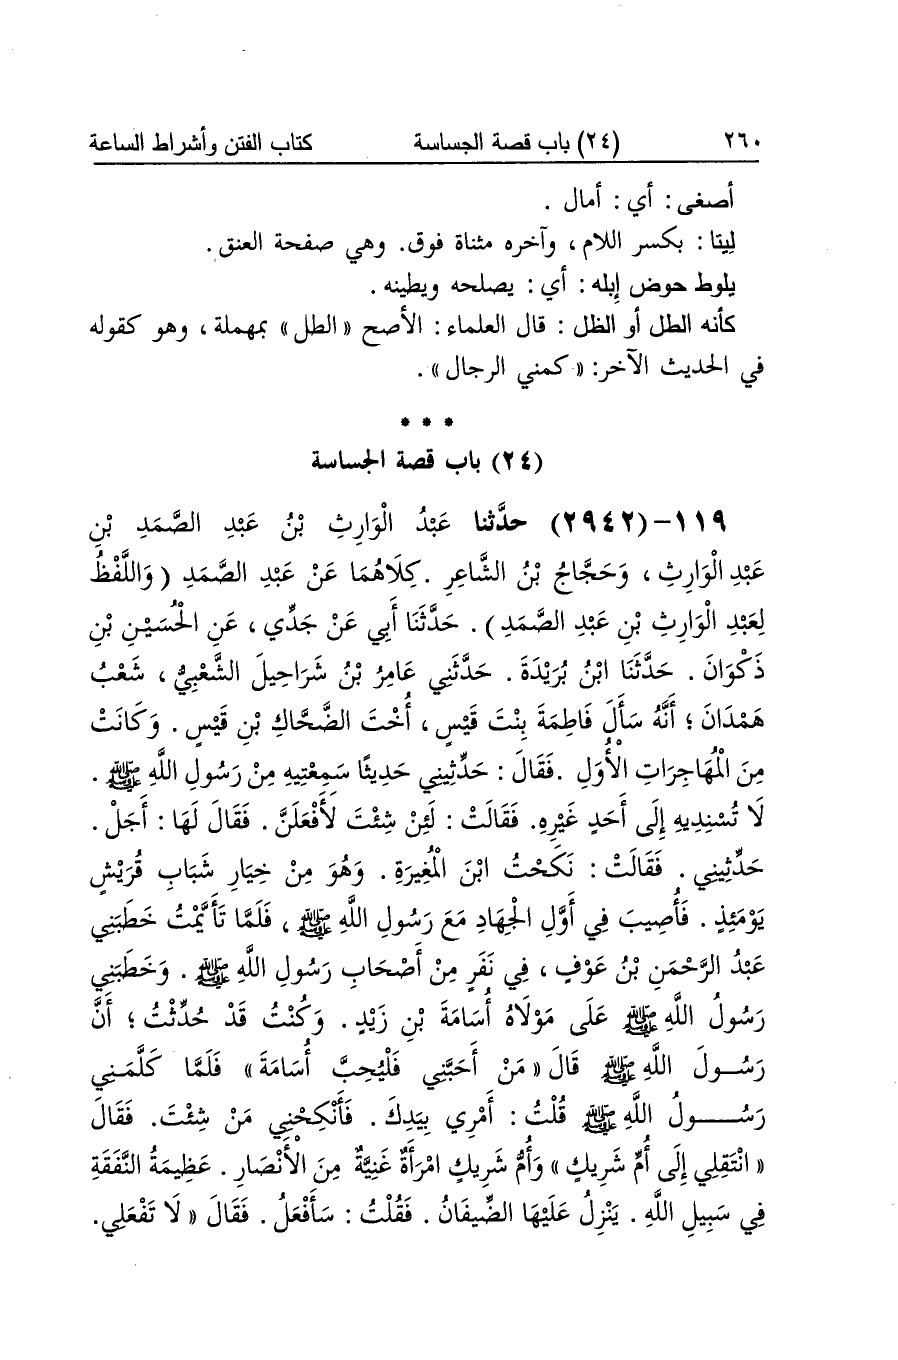 ٢٦٠ (٢٤) باب قصة الجساسة كتاب الفتن وأشراط الساعة
أصغى : أي : أمال .
لِيتا : بكسر اللام ، وآخره مثناة فوق. وهي صفحة العنق .
يلوط حوض إبله : أي : يصلحه ويطينه .
كأنه الطل أو الظل : قال العلماء : الأصح « الطل » بمهملة ، وهو كقوله
في الحديث الآخر: « كمني الرجال » .
* * *
(٢٤) باب قصة الجساسة
١١٩-(٢٩٤٢) حدَّثنا عَبْدُ الْوَارِثِ بْنُ عَبْدِ الصَّمَدِ بْنِ
عَبْدِ الْوَارِثِ ، وَحَجَّاجُ بْنُ الشَّاعِرِ .كِلَاهُمَا عَنْ عَبْدِ الصَّمَدِ ( وَاللَّفْظُ
لِعَبْدِ الْوَارِثِ بْنِ عَبْدِ الصَّمَدِ ) . حَدَّثَنَا أَبِي عَنْ جَدِّي ، عَنِ الْحُسَيْنِ بْنِ
ذَكْوَانَ . حَدَّثَنَا ابْنُ بُرَيْدَةَ . حَدَّثَنِي عَامِرُ بْنُ شَرَاحِيلَ الشَّعْبِيُّ ، شَعْبُ
هَمْدَانَ ؛ أَنَّهُ سَأَلَ فَاطِمَةَ بِنْتَ قَيْسٍ ، أُخْتَ الضَّحَّاكِ بْنِ قَيْسٍ . وَكَانَتْ
مِنَ الْمُهَاجِرَاتِ الْأُوَلِ .فَقَالَ : حَدِّثِينِي حَدِيثًا سَمِعْتِيهِ مِنْ رَسُولِ اللَّهِ ﷺ .
لَا تُسْنِدِيهِ إِلَى أَحَدٍ غَيْرِهِ. فَقَالَتْ : لَئِنْ شِئْتَ لَأَفْعَلَنَّ . فَقَالَ لَهَا : أَجَلْ .
حَدِّثِينِي . فَقَالَتْ : نَكَحْتُ ابْنَ الْمُغِيرَةِ . وَهُوَ مِنْ خِيَارِ شَبَابِ قُرَيْشٍ
يَوْمَئِذٍ . فَأُصِيبَ فِي أَوَّلِ الْجِهَادِ مَعَ رَسُولِ اللَّهِ ﷺ ، فَلَمَّا تَأَيَّمْتُ خَطَبَنِي
عَبْدُ الرَّحْمَنِ بْنُ عَوْفٍ ، فِي نَفَرٍ مِنْ أَصْحَابِ رَسُولِ اللَّهِ ﷺ . وَخَطَبَنِي
رَسُولُ اللَّهِ ﷺ عَلَى مَوْلَاهُ أُسَامَةَ بْنِ زَيْدٍ . وَكُنْتُ قَدْ حُدِّثْتُ ؛ أَنَّ
رَسُولَ اللَّهِ ﷺ قَالَ « مَنْ أَحَبَّنِي فَلْيُحِبَّ أُسَامَةَ » فَلَمَّا كَلَّمَنِي
رَسُولُ اللَّهِ ﷺ قُلْتُ : أَمْرِي بِيَدِكَ . فَأَنْكِحْنِي مَنْ شِئْتَ. فَقَالَ
« انْتَقِلِي إِلَى أُمِّ شَرِيكٍ » وَأُمُّ شَرِيكٍ امْرَأَةٌ غَنِيَّةٌ مِنَ الْأَنْصَارِ . عَظِيمَةُ النَّفَقَةِ
فِي سَبِيلِ اللَّهِ . يَنْزِلُ عَلَيْهَا الضِّيفَانُ . فَقُلْتُ : سَأَفْعَلُ . فَقَالَ « لَا تَفْعَلِي.